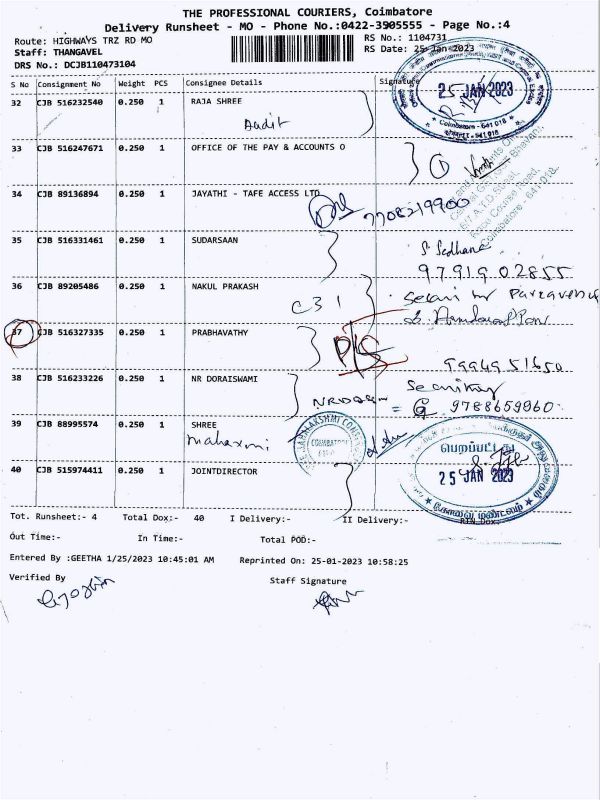 THE PROFESSIONAL COURIERS, Coimbatore
Delivery Runsheet - MO - Phone No.:0422-3905555 - Page No.:4
Route: HIGHWAYS TRZ RD MO
RS No.: 1104731
Staff: THANGAVEL
RS Date: 25-Jan-2023
DRS No.: DCJB110473104
S No Consignment No Weight PCS Consignee Details Signature
25 JAN 2023
Coimbatore - 641 018
32 CJB 516232540 0.250 1 RAJA SHREE
Audit
33 CJB 516247671 0.250 1 OFFICE OF THE PAY & ACCOUNTS O
34 CJB 89136894 0.250 1 JAYATHI - TAFE ACCESS LTD
7708219900
Race Course Road,
Coimbatore - 641 018.
35 CJB 516331461 0.250 1 SUDARSAAN
97919 02855
36 CJB 89205486 0.250 1 NAKUL PRAKASH
C31
37 CJB 516327335 0.250 1 PRABHAVATHY
99949 51650
38 CJB 516233226 0.250 1 NR DORAISWAMI
Security
9788659960
39 CJB 88995574 0.250 1 SHREE
COIMBATORE
பெறப்பட்டது
40 CJB 515974411 0.250 1 JOINTDIRECTOR
25 JAN 2023
Tot. Runsheet:- 4 Total Dox:- 40 I Delivery:- II Delivery:- RTN Dox:
Out Time:- In Time:- Total POD:-
Entered By :GEETHA 1/25/2023 10:45:01 AM Reprinted On: 25-01-2023 10:58:25
Verified By Staff Signature